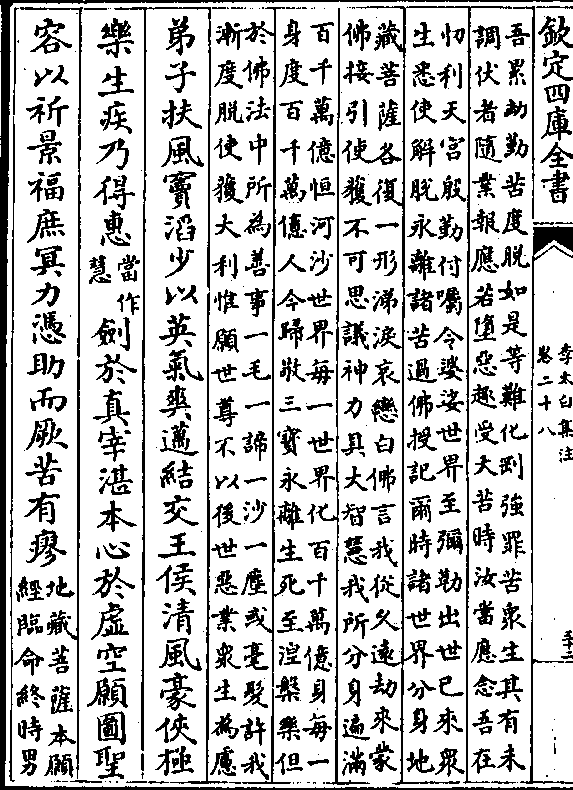 欽定四庫全書
李太白集注
卷二十八
吾累劫勤苦度脫如是等難化剛強罪苦衆生其有未
調伏者隨業報應若墮惡趣受大苦時汝當應念吾在
忉利天宮殷勤付囑令婆娑世界至彌勒出世已來衆
生悉使解脫永離諸苦遇佛授記爾時諸世界分身地
藏菩薩各復一形涕淚哀戀白佛言我從久遠劫來蒙
佛接引使獲不可思議神力具大智慧我所分身遍滿
百千萬億恒河沙世界每一世界化百千萬億身每一
身度百千萬億人令歸敬三寶永離生死至涅槃樂但
於佛法中所為善事一毛一諦一沙一塵或毫髮許我
漸度脫使獲大利惟願世尊不以後世惡業衆生為慮
弟子扶風竇滔少以英氣爽邁結交王侯清風豪俠極
樂生疾乃得惠當作慧劍於真宰湛本心於虛空願圖聖
容以祈景福庶冥力憑助而厥苦有瘳地藏菩薩本願
經臨命終時男